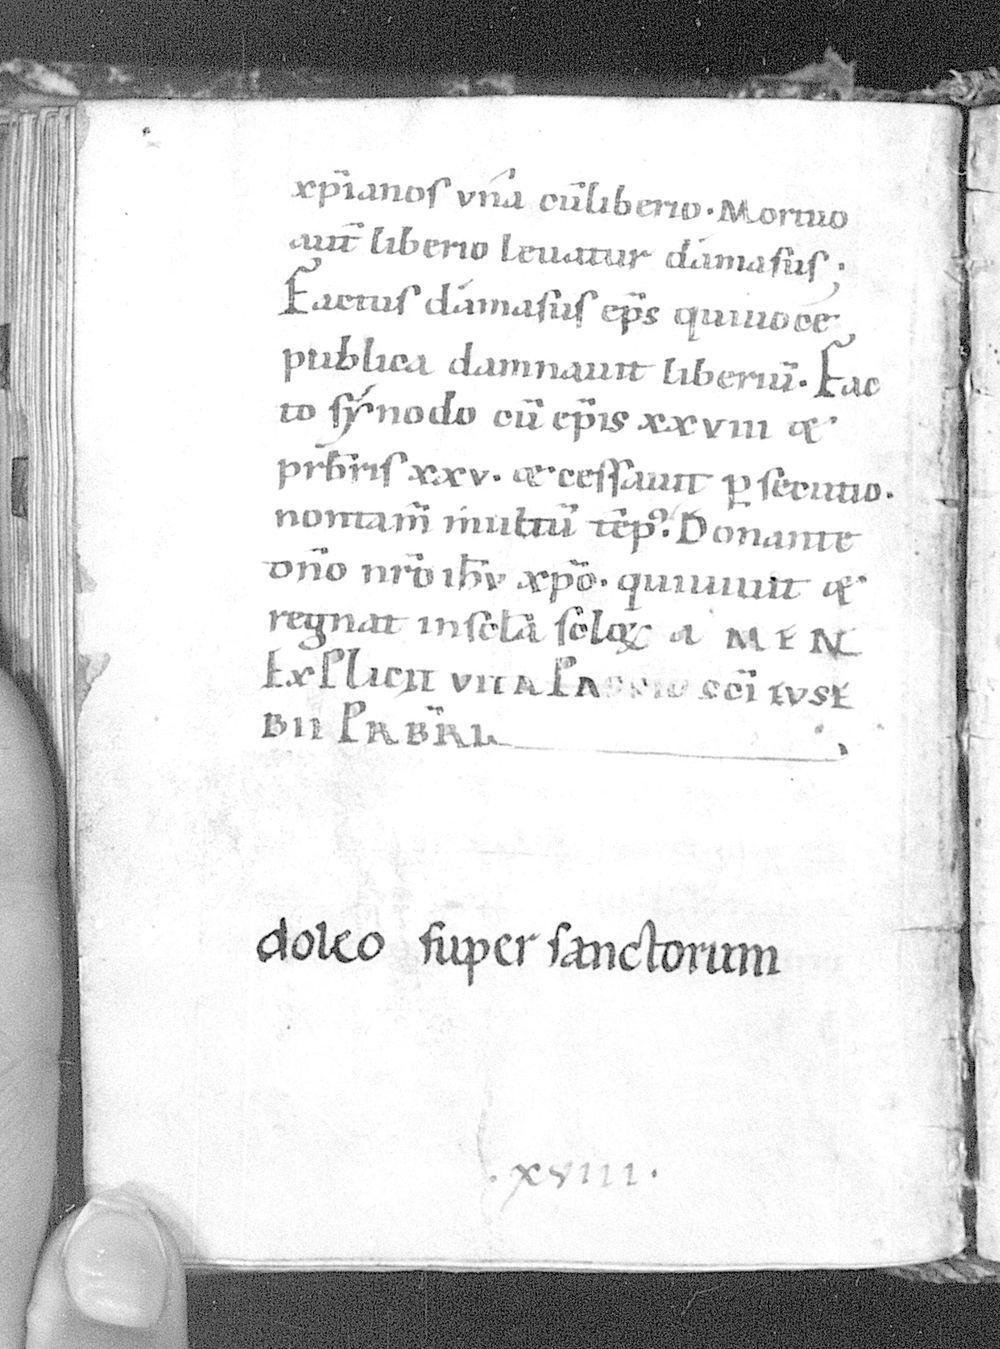 xp̄ianos vn̄a cū liberio. Mortuo
aut̄ liberio leuatur damasus;
Factus damasus ep̄s qui uoce
publica damnauit liberiū. Fac
to synodo cū ep̄is xxviii et
prb̄ris xxv. et cessauit ꝑsecutio.
non tam̄ multū tēp̄ꝰ. Donante
dn̄o nr̄o ih̄u xp̄o. qui uiuit et
regnat in sc̄la sc̄loꝝ a MEN
ExPlicit VITA PAssio sc̄i EVSE
BII PRB̄RI
doleo super sanctorum
.xviiii.